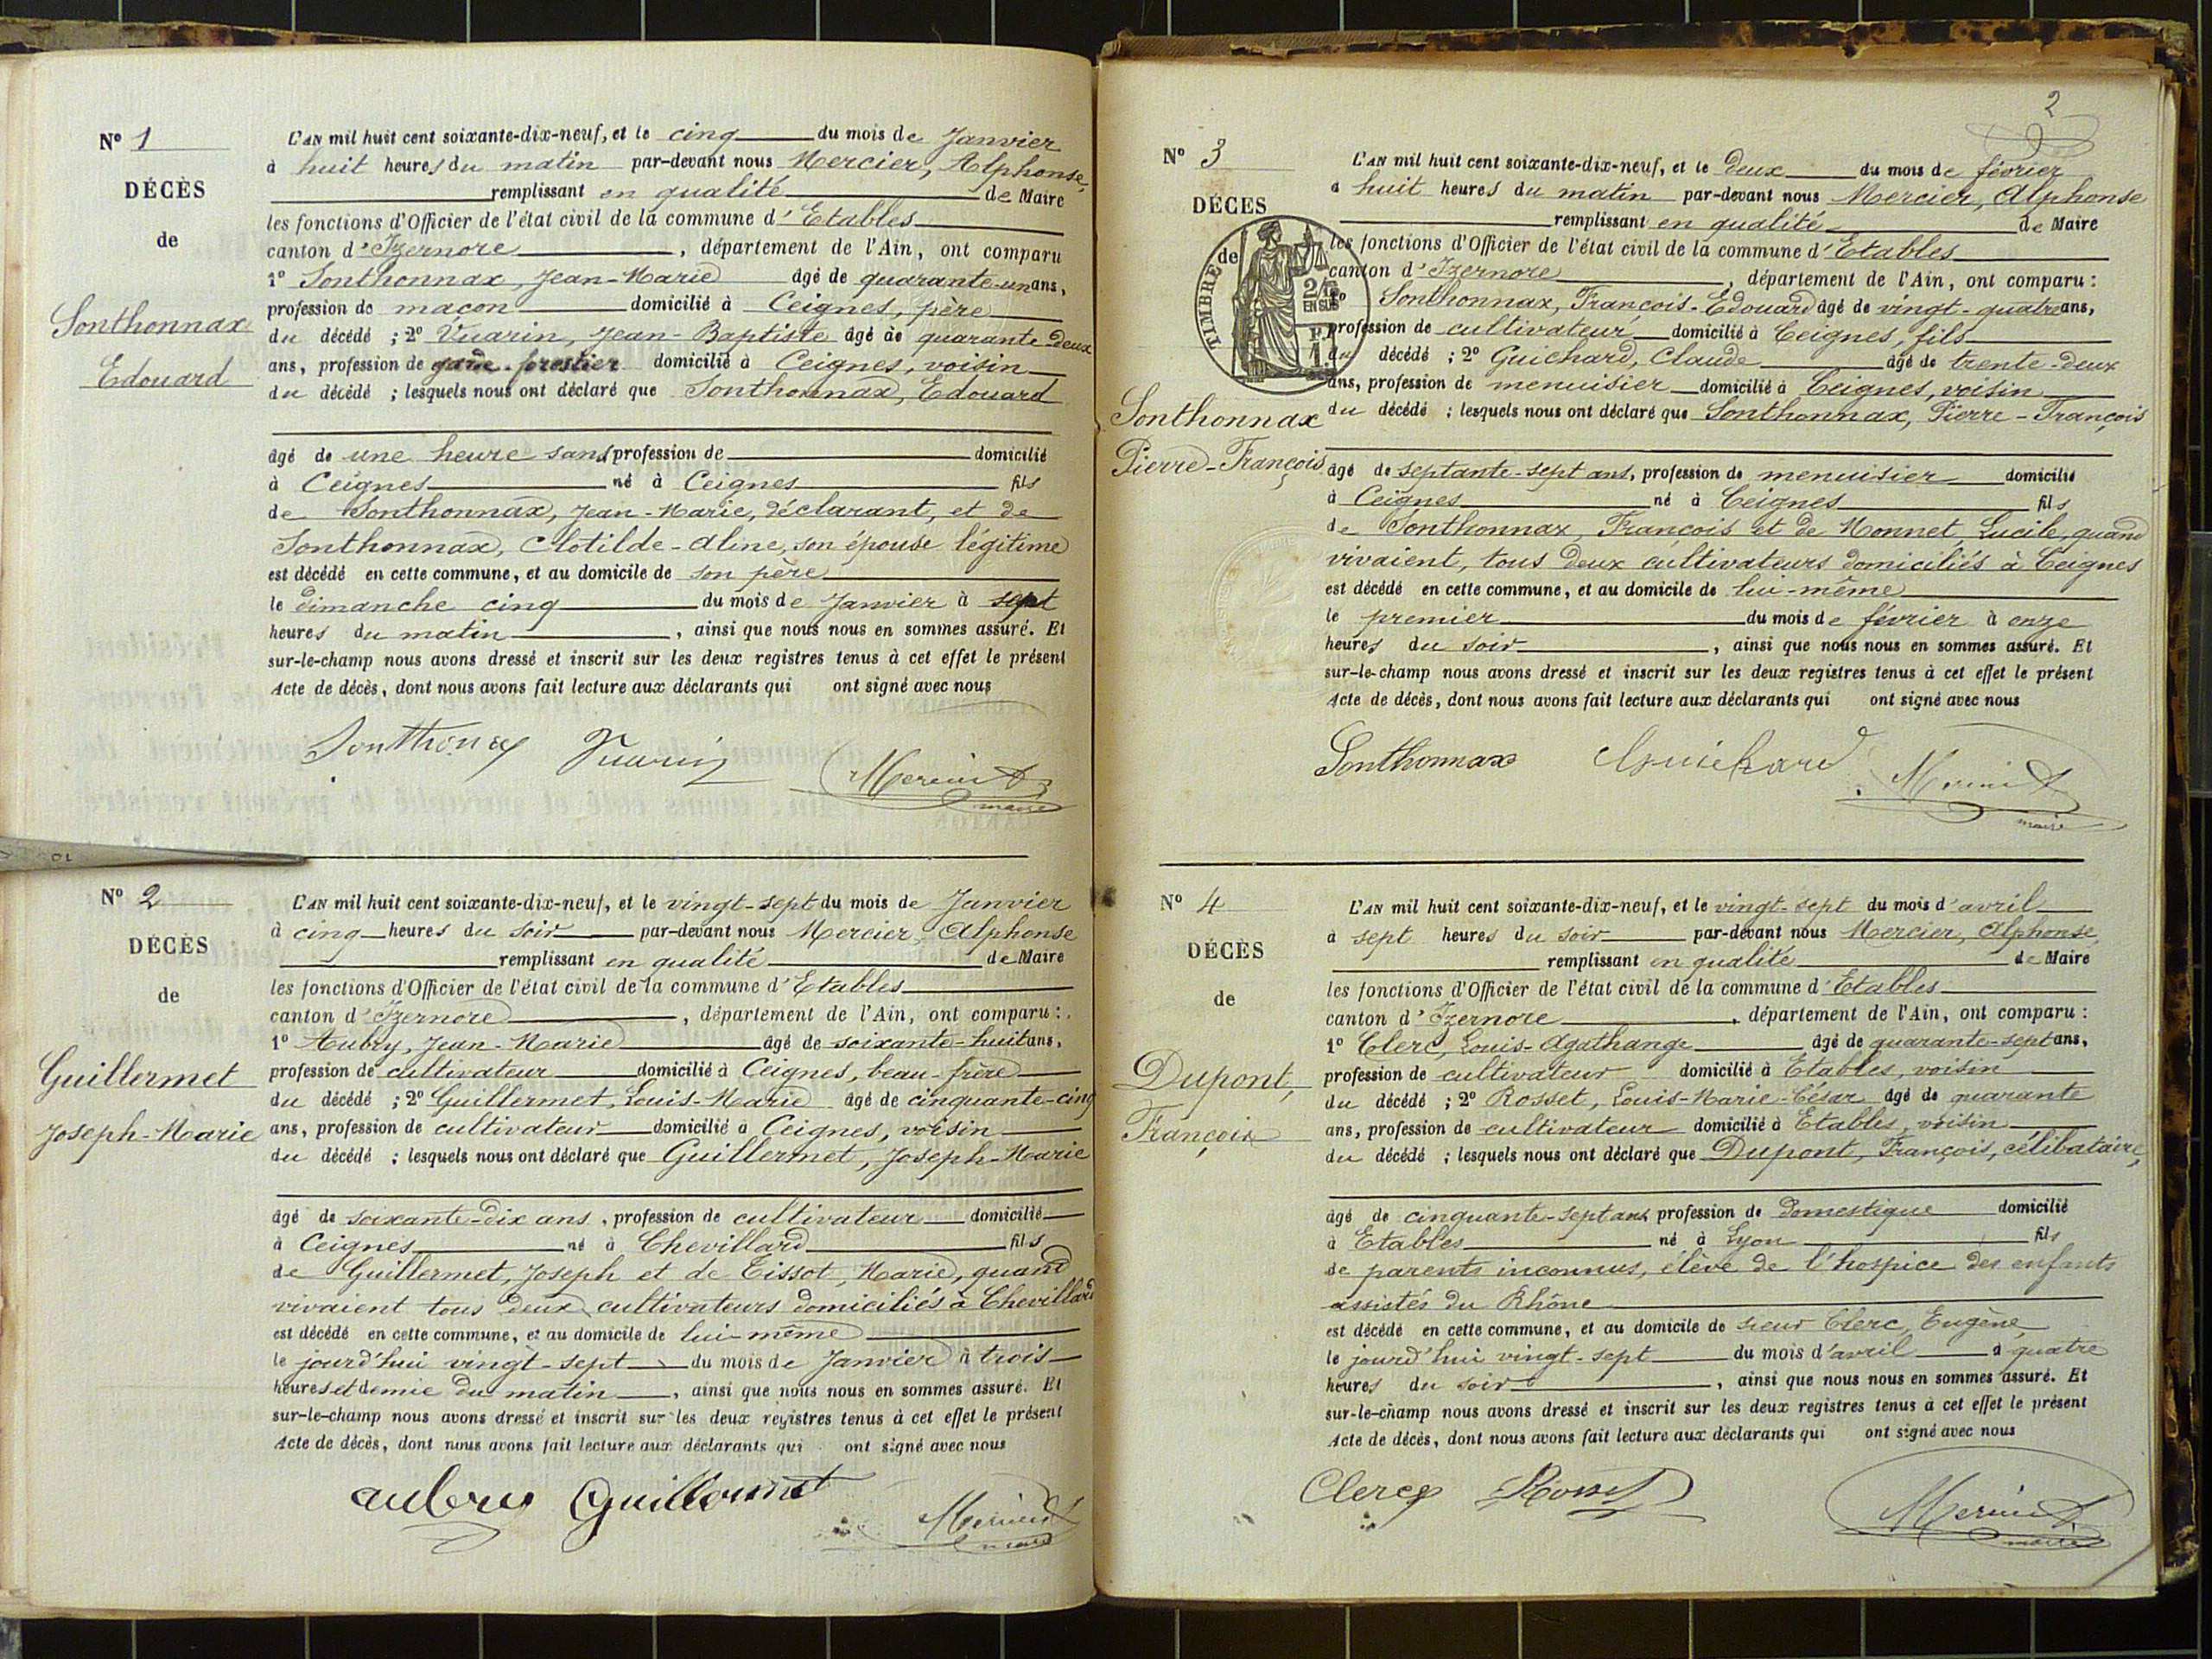 N° 1
DÉCÈS
de
Sonthonnax
Edouard
L'AN mil huit cent soixante-dix-neuf, et le cinq du mois de Janvier
à huit heures du matin par-devant nous Mercier, Alphonse,
remplissant en qualité de Maire
les fonctions d'Officier de l'état civil de la commune d'Etables
canton d'Izernore, département de l'Ain, ont comparu
1° Sonthonnax, Jean-Marie âgé de quarante-un ans,
profession de maçon domicilié à Ceignes, père
du décédé ; 2° Vuarin, Jean-Baptiste âgé de quarante deux
ans, profession de garde-forestier domicilié à Ceignes, voisin
du décédé ; lesquels nous ont déclaré que Sonthonnax, Edouard
âgé de une heure sans profession de domicilié
à Ceignes né à Ceignes fils
de Sonthonnax, Jean-Marie, déclarant, et de
Sonthonnax, Clotilde-Aline, son épouse légitime
est décédé en cette commune, et au domicile de son père
le dimanche cinq du mois de Janvier à sept
heures du matin, ainsi que nous nous en sommes assuré. Et
sur-le-champ nous avons dressé et inscrit sur les deux registres tenus à cet effet le présent
Acte de décès, dont nous avons fait lecture aux déclarants qui ont signé avec nous
Sonthonax Vuarin Mercier
maire
N° 2
DÉCÈS
de
Guillermet
Joseph-Marie
L'AN mil huit cent soixante-dix-neuf, et le vingt-sept du mois de Janvier
à cinq heures du soir par-devant nous Mercier, Alphonse
remplissant en qualité de Maire
les fonctions d'Officier de l'état civil de la commune d'Etables
canton d'Izernore, département de l'Ain, ont comparu :
1° Aubry, Jean-Marie âgé de soixante-huit ans,
profession de cultivateur domicilié à Ceignes, beau-frère
du décédé ; 2° Guillermet, Louis-Marie âgé de cinquante-cinq
ans, profession de cultivateur domicilié à Ceignes, voisin
du décédé ; lesquels nous ont déclaré que Guillermet, Joseph-Marie
âgé de soixante-dix ans, profession de cultivateur domicilié
à Ceignes né à Chevillard fils
de Guillermet, Joseph et de Tissot, Marie, quand
vivaient tous deux cultivateurs domiciliés à Chevillard
est décédé en cette commune, et au domicile de lui-même
le jourd'hui vingt-sept du mois de Janvier à trois
heures et demie du matin, ainsi que nous nous en sommes assuré. Et
sur-le-champ nous avons dressé et inscrit sur les deux registres tenus à cet effet le présent
Acte de décès, dont nous avons fait lecture aux déclarants qui ont signé avec nous
Guillermet Mercier
maire
2
N° 3
DÉCÈS
de
TIMBRE
2/10
EN SUS
Sonthonnax
Pierre-François
L'AN mil huit cent soixante-dix-neuf, et le deux du mois de février
à huit heures du matin par-devant nous Mercier, Alphonse
remplissant en qualité de Maire
les fonctions d'Officier de l'état civil de la commune d'Etables
canton d'Izernore, département de l'Ain, ont comparu :
1° Sonthonnax, François-Edouard âgé de vingt-quatre ans,
profession de cultivateur domicilié à Ceignes, fils
du décédé ; 2° Guichard, Claude âgé de trente-deux
ans, profession de menuisier domicilié à Ceignes, voisin
du décédé ; lesquels nous ont déclaré que Sonthonnax, Pierre-François
âgé de septante-sept ans, profession de menuisier domicilié
à Ceignes né à Ceignes fils
de Sonthonnax, François et de Monnet, Lucile, quand
vivaient, tous deux cultivateurs domiciliés à Ceignes
est décédé en cette commune, et au domicile de lui-même
le premier du mois de février à onze
heures du soir, ainsi que nous nous en sommes assuré. Et
sur-le-champ nous avons dressé et inscrit sur les deux registres tenus à cet effet le présent
Acte de décès, dont nous avons fait lecture aux déclarants qui ont signé avec nous
Sonthonnax Guichard Mercier
maire
N° 4
DÉCÈS
de
Dupont,
François
L'AN mil huit cent soixante-dix-neuf, et le vingt-sept du mois d'avril
à sept heures du soir par-devant nous Mercier, Alphonse,
remplissant en qualité de Maire
les fonctions d'Officier de l'état civil de la commune d'Etables
canton d'Izernore, département de l'Ain, ont comparu :
1° Clerc, Louis-Agathange âgé de quarante-sept ans,
profession de cultivateur domicilié à Etables, voisin
du décédé ; 2° Rosset, Louis-Marie-César âgé de quarante
ans, profession de cultivateur domicilié à Etables, voisin
du décédé ; lesquels nous ont déclaré que Dupont, François, célibataire,
âgé de cinquante-sept ans profession de domestique domicilié
à Etables né à Lyon fils
de parents inconnus, élève de l'hospice des enfants
assistés du Rhône
est décédé en cette commune, et au domicile de sieur Clerc, Eugène,
le jourd'hui vingt-sept du mois d'avril à quatre
heures du soir, ainsi que nous nous en sommes assuré. Et
sur-le-champ nous avons dressé et inscrit sur les deux registres tenus à cet effet le présent
Acte de décès, dont nous avons fait lecture aux déclarants qui ont signé avec nous
Clerc Rosset Mercier
maire